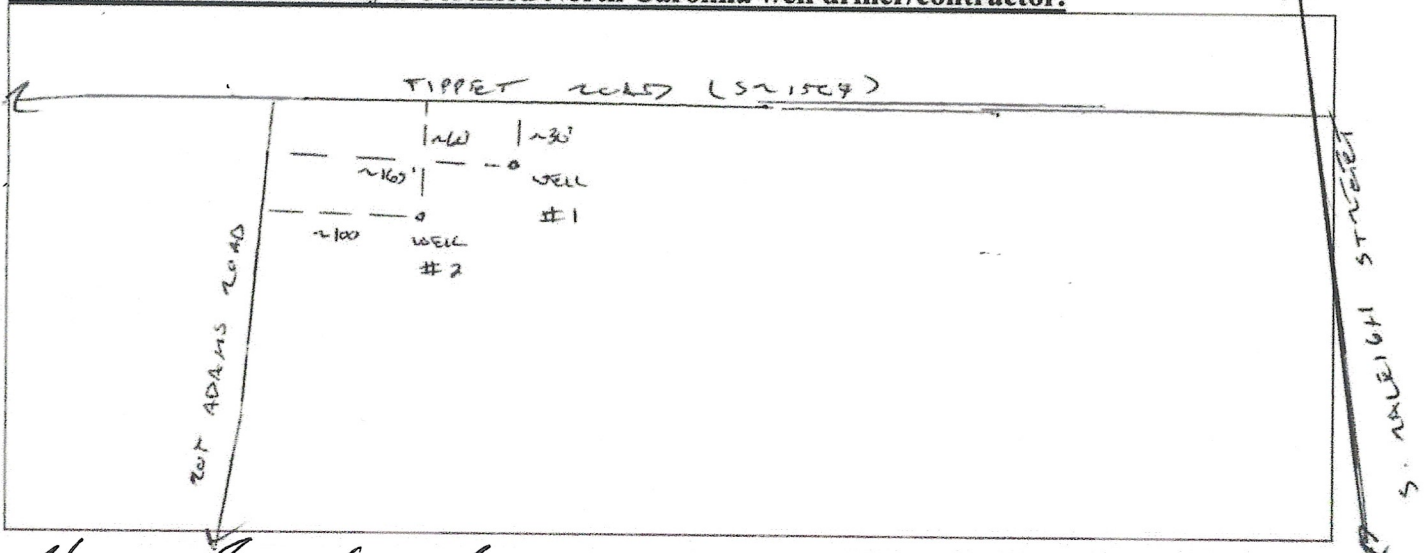 North Carolina well driller/contractor.
TIPPET ROAD (SR 1504)
~60' ~30'
~160'
WELL
#1
~100
WELL
#2
ROY ADAMS ROAD
S. RALEIGH STREET